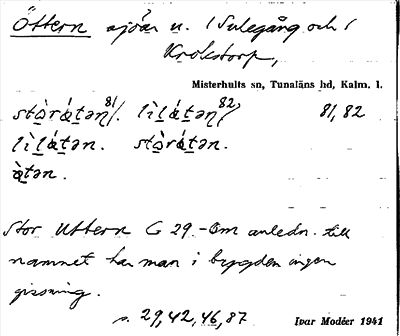 Öttern sjöar n. (Sulegång och
Krokstorp,
Misterhults sn, Tunaläns hd, Kalm. l.
stòrátən 81/. lìlátəɳ 82/ 81, 82
lìlátən. stòrátən.
àtən.
Stor Uttern G 29. - Om anledn. till
namnet har man i bygden ingen
gissning.
s. 29, 42, 46, 87
Ivar Modéer 1941